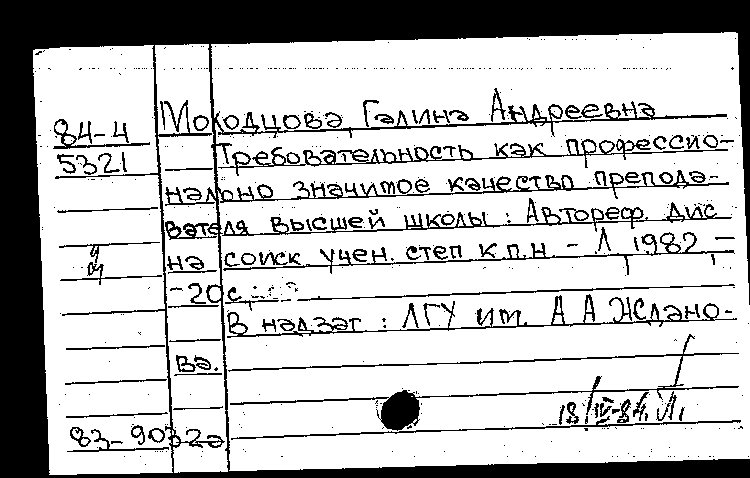 84-4 Мокодцова, Галина Андреевна
5321 Требовательность как профессио-
нально значимое качество препода-
вателя высшей школы : Автореф. дис
на соиск учен. степ к.п.н. - Л, 1982, -
-20 с.
В надзаг : ЛГУ им. А А Ждано-
ва.
18/IV-84.
83-9032а